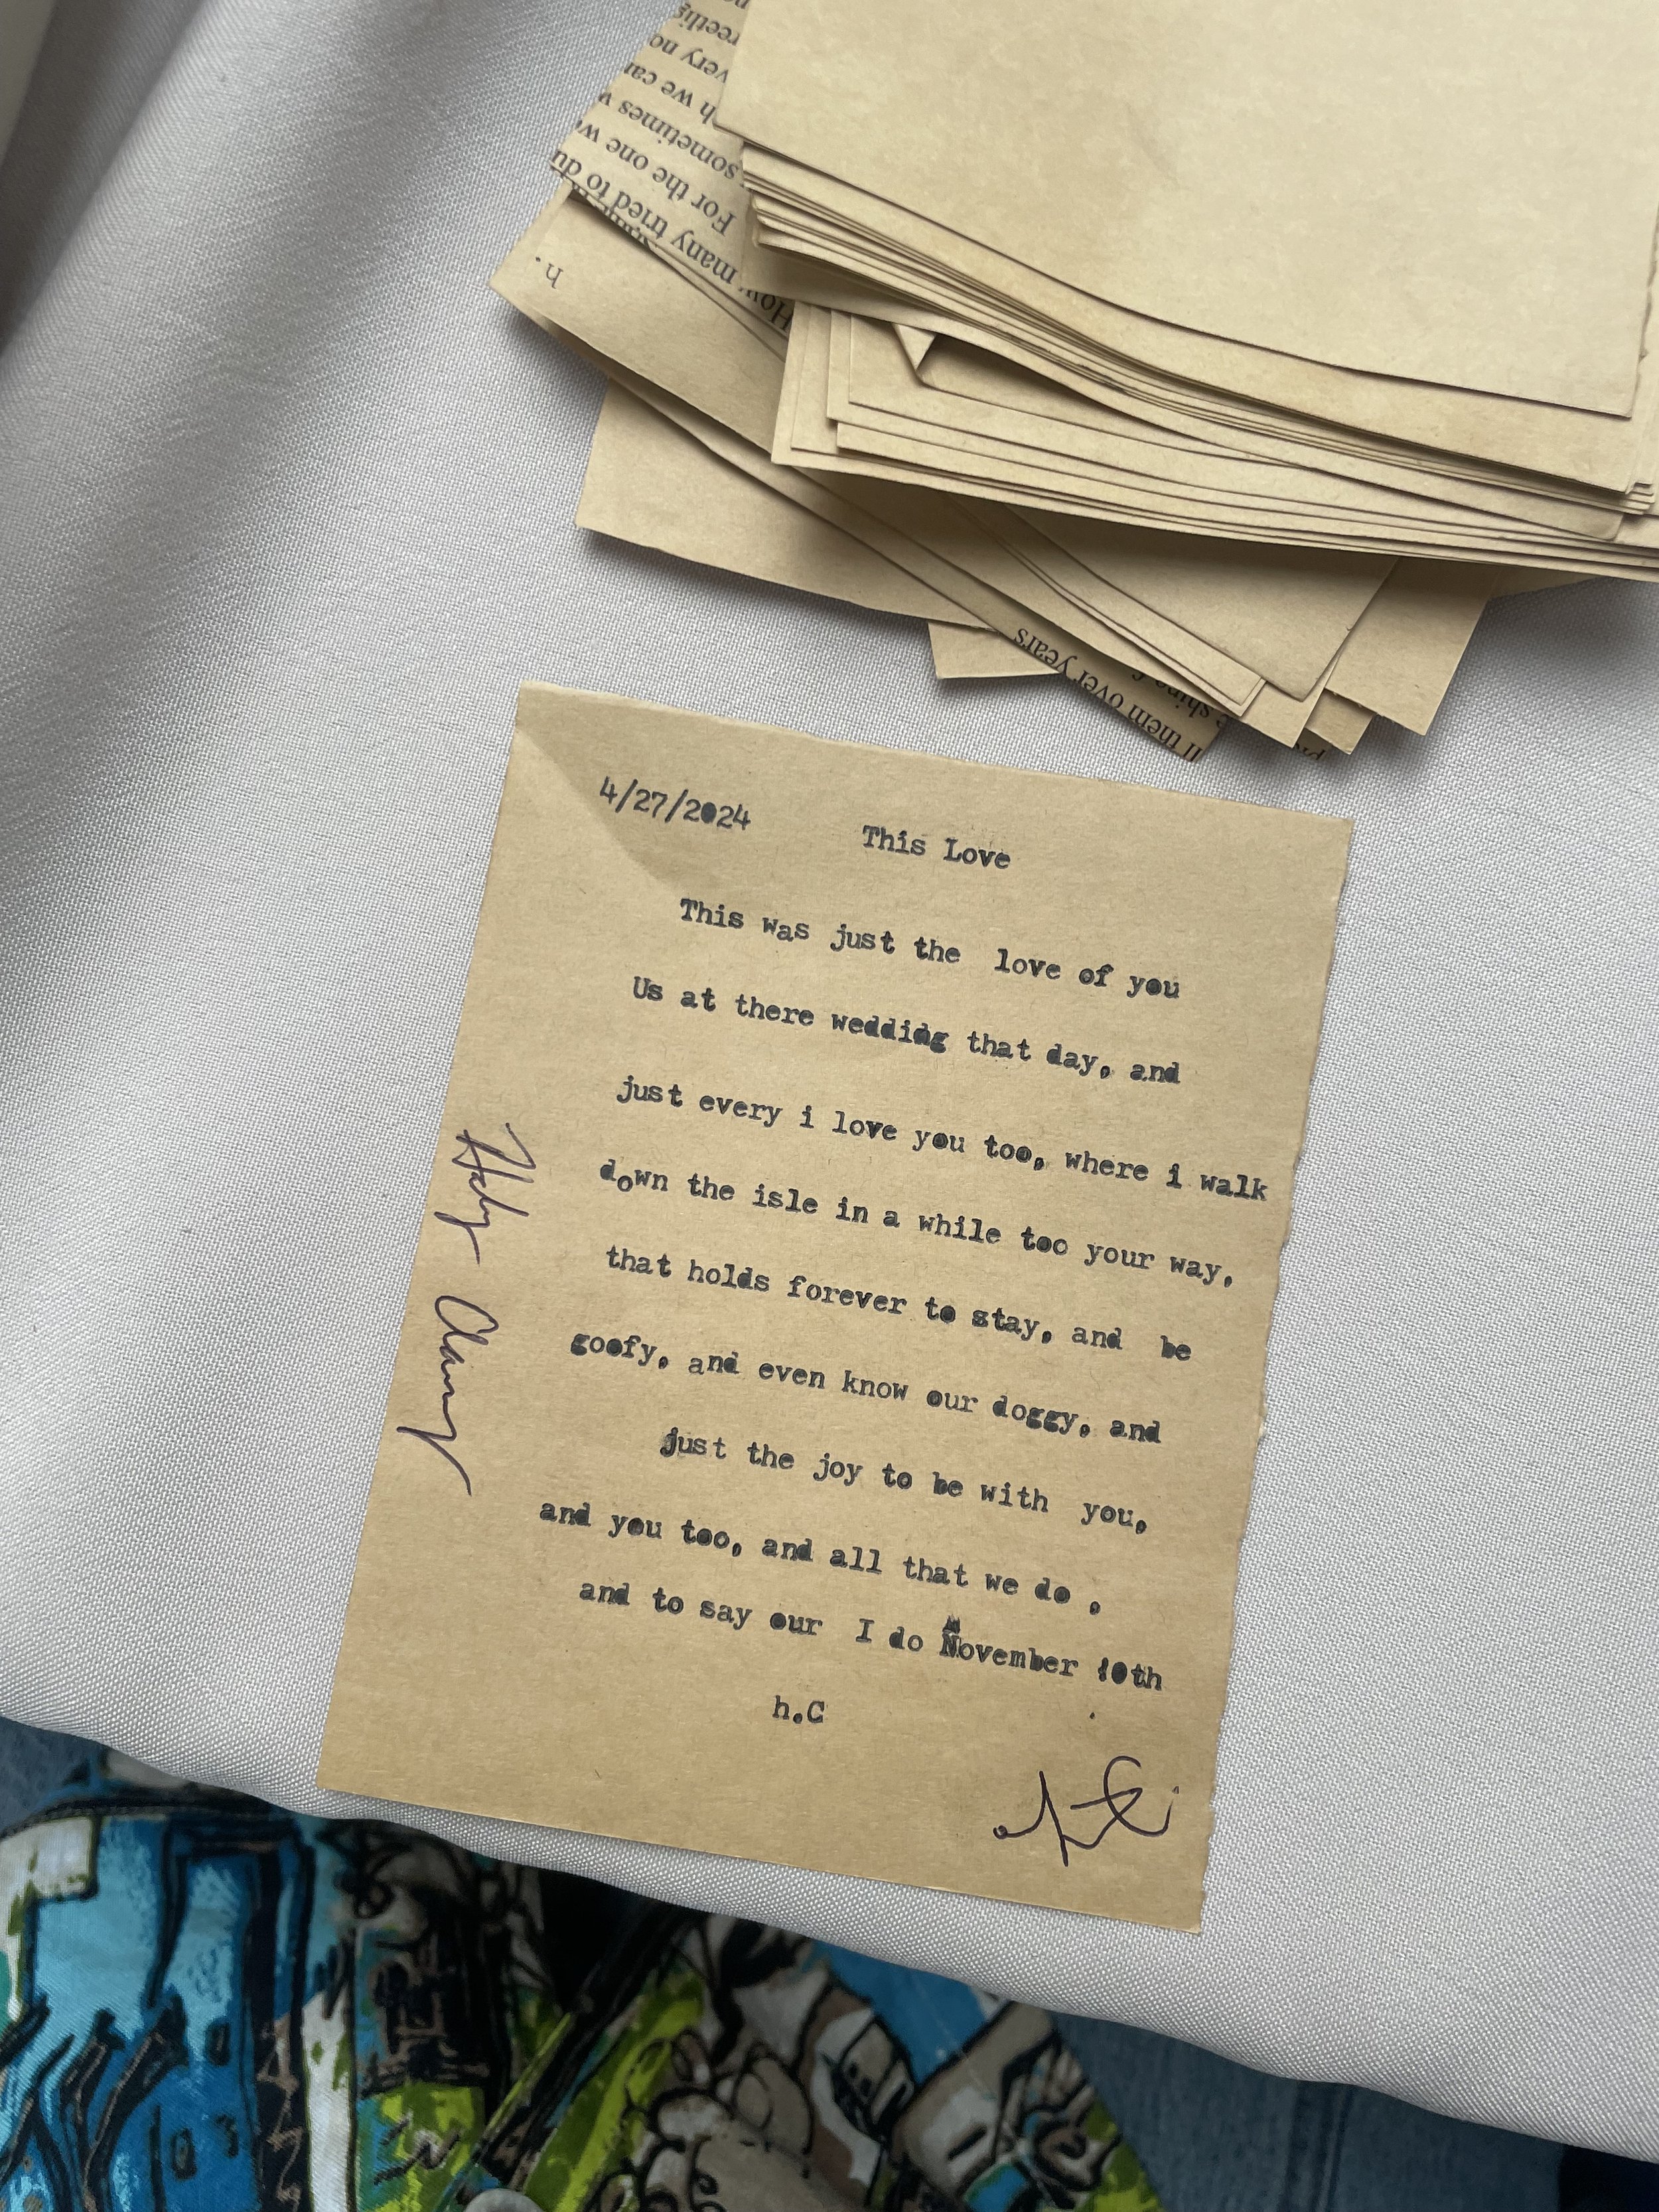 reetlig
very no
h we can
sometimes w
For the one we
many tried to du
How
h.
ll them over years
e shine f
4/27/2024
This Love
This was just the love of you
Us at there weddidg that day, and
just every i love you too, where i walk
down the isle in a while too your way,
that holds forever to stay, and be
goofy, and even know our doggy, and
just the joy to be with you,
and you too, and all that we do ,
and to say our I do November 10th
h.C